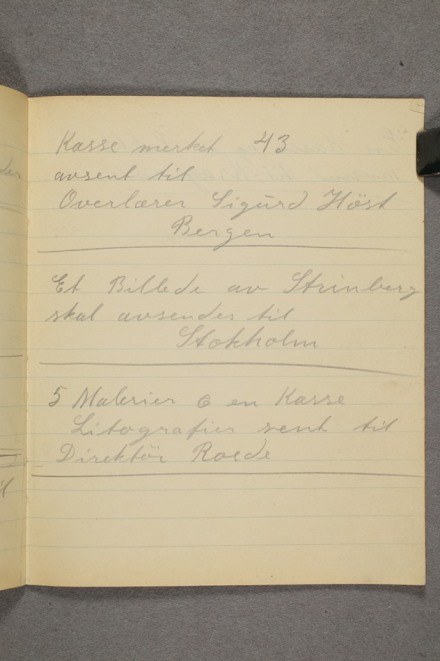 Kasse merket 43
avsent til
Overlærer Sigurd Höst
Bergen
Et Billede av Strinberg
skal avsendes til
Stokholm
5 Malerier o en Kasse
Litografier sent til
Direktör Roede